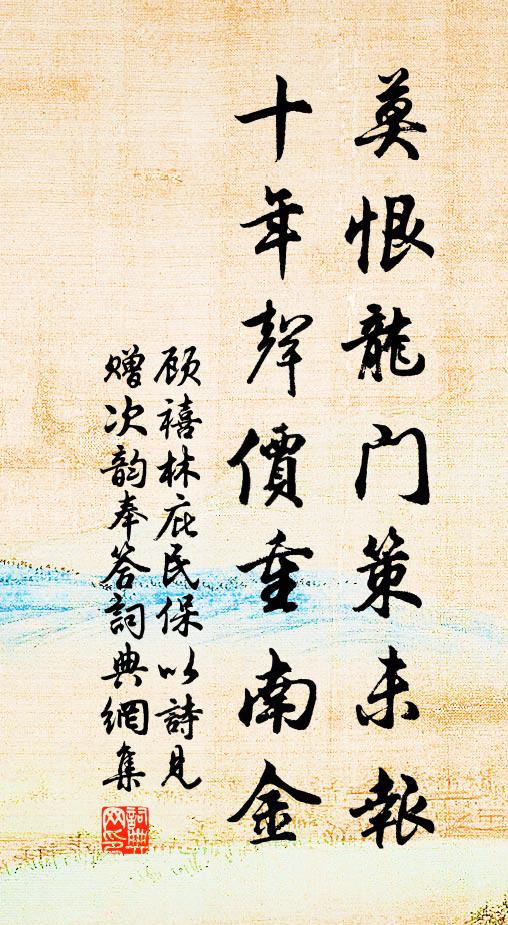 莫恨龍门策未報
十年聲價重南金
顾禧林庇民保以詩見
赠次韵奉答詞典網集